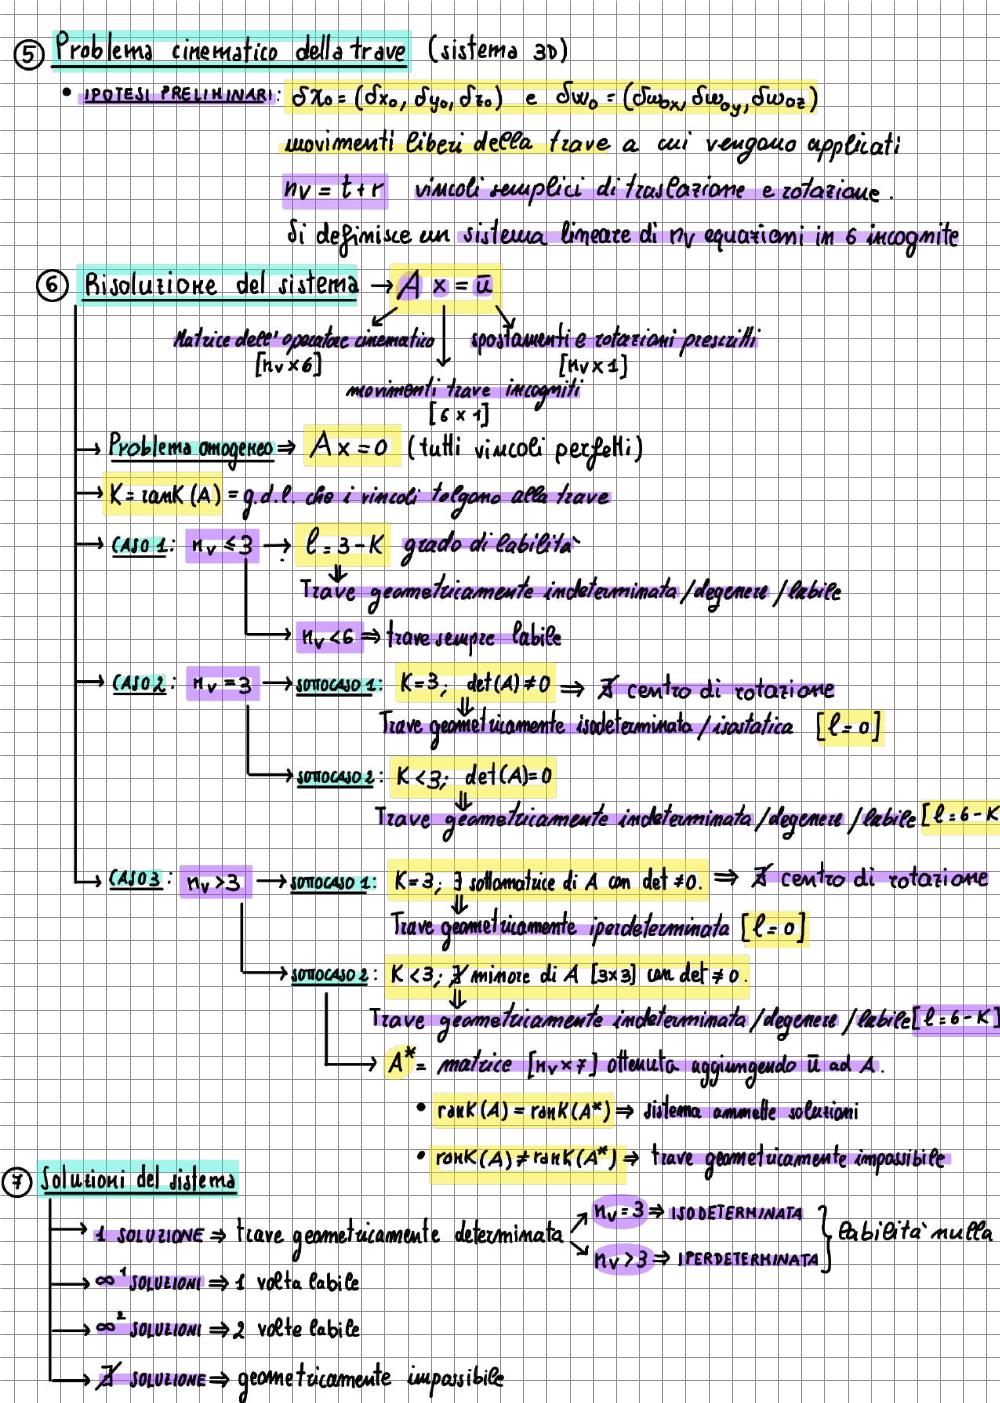 ⑤ Problema cinematico della trave (sistema 3D)
• IPOTESI PRELIMINARI: δx₀ = (δx₀, δy₀, δz₀) e δw₀ = (δw₀ₓ, δw₀y, δw₀z)
movimenti liberi della trave a cui vengono applicati
nv = t+r vincoli semplici di traslazione e rotazione.
Si definisce un sistema lineare di nv equazioni in 6 incognite
⑥ Risoluzione del sistema → A x = ū
Matrice dell'operatore cinematico spostamenti e rotazioni prescritti
[nv x 6] [nv x 1]
movimenti trave incogniti
[6 x 1]
→ Problema omogeneo ⇒ A x = 0 (tutti vincoli perfetti)
→ K = ranK (A) = g.d.l. che i vincoli tolgono alla trave
→ CASO 1: nv ≤ 3 → l = 3 - K grado di labilità
⇓
Trave geometricamente indeterminata/degenere/labile
→ nv < 6 ⇒ trave sempre labile
→ CASO 2: nv = 3 → SOTTOCASO 1: K = 3; det(A) ≠ 0 ⇒ ∄ centro di rotazione
⇓
Trave geometricamente isodeterminata/isostatica [l = 0]
→ SOTTOCASO 2: K < 3; det(A) = 0
⇓
Trave geometricamente indeterminata/degenere/labile [l = 6 - K
→ CASO 3: nv > 3 → SOTTOCASO 1: K = 3; ∃ sottomatrice di A con det ≠ 0. ⇒ ∄ centro di rotazione
⇓
Trave geometricamente iperdeterminata [l = 0]
→ SOTTOCASO 2: K < 3; ∄ minore di A [3x3] con det ≠ 0.
⇓
Trave geometricamente indeterminata/degenere/labile [l = 6 - K]
→ A* = matrice [nv x 7] ottenuta aggiungendo ū ad A.
• ranK(A) = ranK(A*) ⇒ sistema ammette soluzioni
• ranK(A) ≠ ranK(A*) ⇒ trave geometricamente impossibile
⑦ Soluzioni del sistema
→ 1 SOLUZIONE ⇒ trave geometricamente determinata
nv = 3 ⇒ ISODETERMINATA
nv > 3 ⇒ IPERDETERMINATA
} labilità nulla
→ ∞¹ SOLUZIONI ⇒ 1 volta labile
→ ∞² SOLUZIONI ⇒ 2 volte labile
→ ∄ SOLUZIONE ⇒ geometricamente impossibile